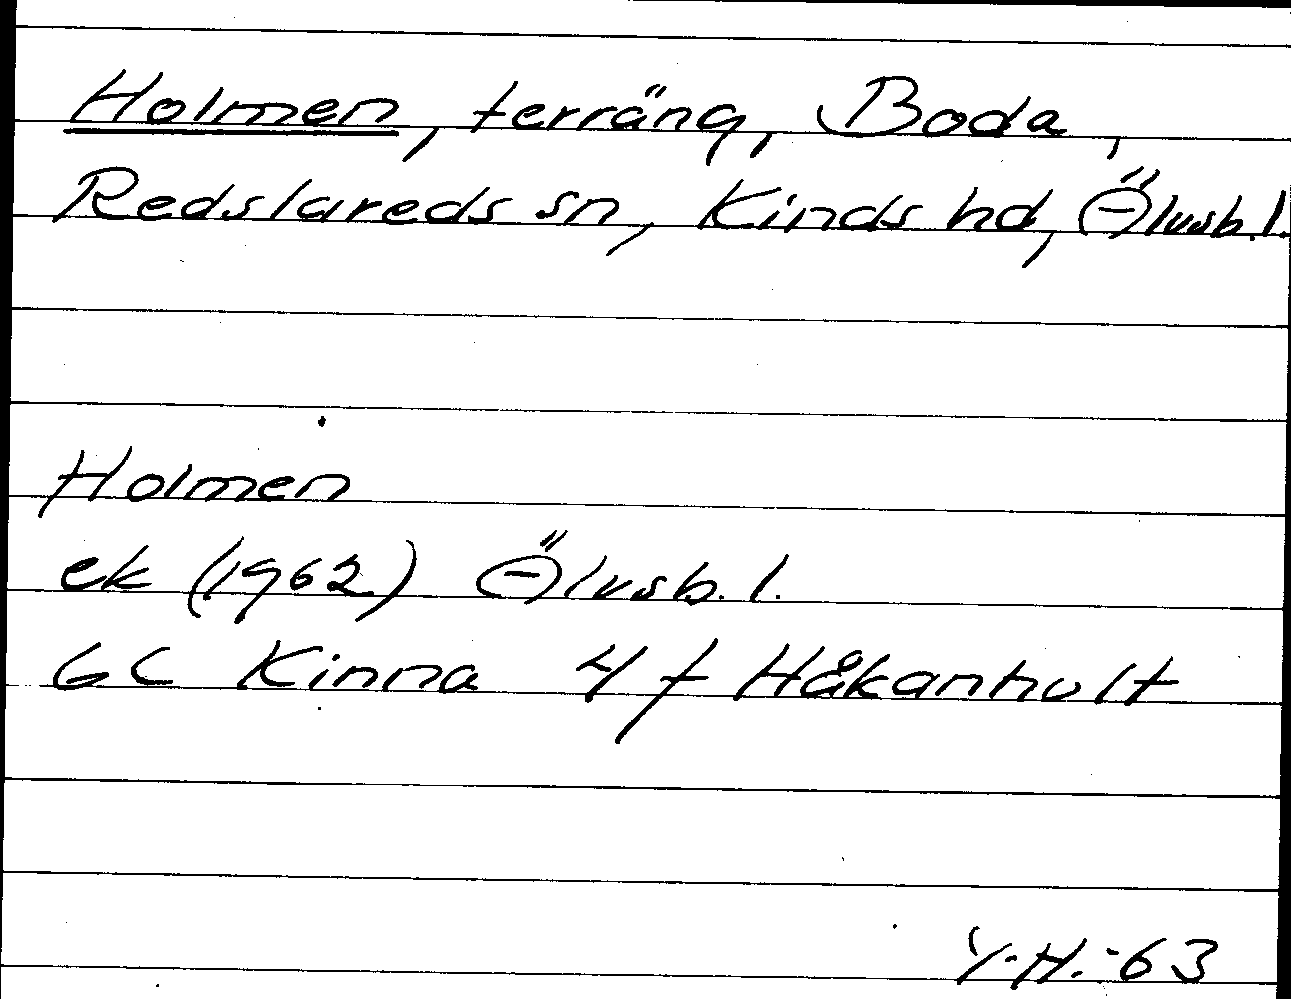 Holmen, terräng, Boda,
Redslareds sn, Kinds hd, Älvsb. l.
Holmen
ek (1962) Älvsb. l.
6C Kinna 4 f Håkanhult
Y.H.-63